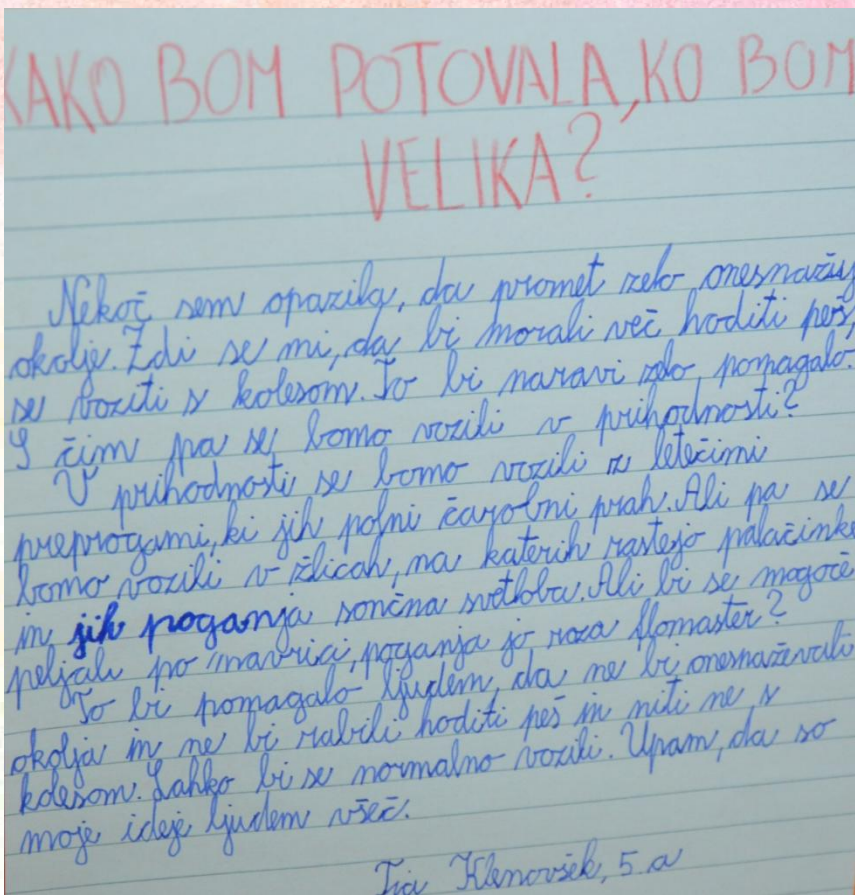 KAKO BOM POTOVALA, KO BOM
VELIKA?
Nekoč sem opazila, da promet zelo onesnažuj
okolje. Zdi se mi, da bi morali več hoditi peš,
se voziti s kolesom. To bi naravi zelo pomagalo.
S čim pa se bomo vozili v prihodnosti?
V prihodnosti se bomo vozili z letečimi
preprogami, ki jih polni čarobni prah. Ali pa se
bomo vozili v žlicah, na katerih rastejo palačinke
in jih poganja sončna svetloba. Ali bi se mogoče
peljali po mavrici, poganja jo roza flomaster?
To bi pomagalo ljudem, da ne bi onesnaževali
okolja in ne bi rabili hoditi peš in niti ne s
kolesom. Lahko bi se normalno vozili. Upam, da so
moje ideje ljudem všeč.
Tia Klenovšek, 5. a